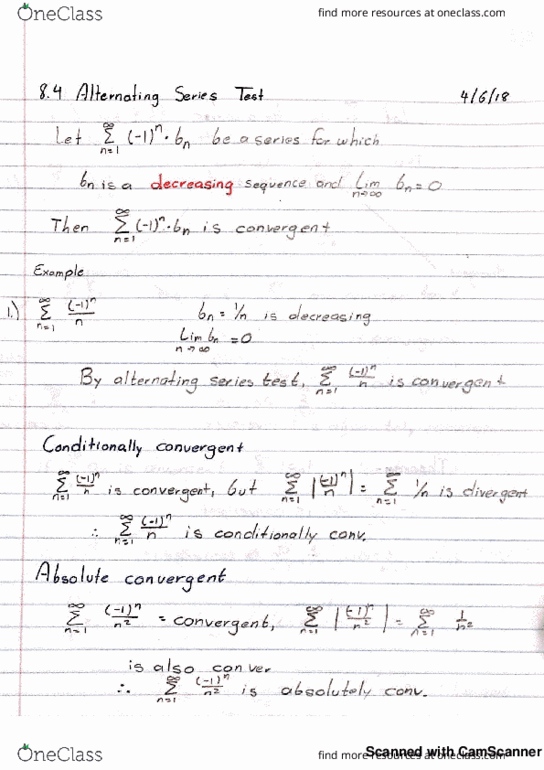 OneClass
find more resources at oneclass.com
8.4 Alternating Series Test 4/6/18
Let ∞ Σ n=1 (-1)ⁿ · bₙ be a series for which
bₙ is a decreasing sequence and Lim n→∞ bₙ = 0
Then ∞ Σ n=1 (-1)ⁿ · bₙ is convergent
Example
1.) ∞ Σ n=1 (-1)ⁿ/n bₙ = 1/n is decreasing
Lim n→∞ bₙ = 0
By alternating series test, ∞ Σ n=1 (-1)ⁿ/n is convergent
Conditionally convergent
∞ Σ n=1 (-1)ⁿ/n is convergent, but ∞ Σ n=1 |(-1)ⁿ/n| = ∞ Σ n=1 1/n is divergent
∴ ∞ Σ n=1 (-1)ⁿ/n is conditionally conv.
Absolute convergent
∞ Σ n=1 (-1)ⁿ/n² = convergent, ∞ Σ n=1 |(-1)ⁿ/n²| = ∞ Σ n=1 1/n²
is also conver
∴ ∞ Σ n=1 (-1)ⁿ/n² is absolutely conv.
OneClass
find more resources at oneclass.com
Scanned with CamScanner